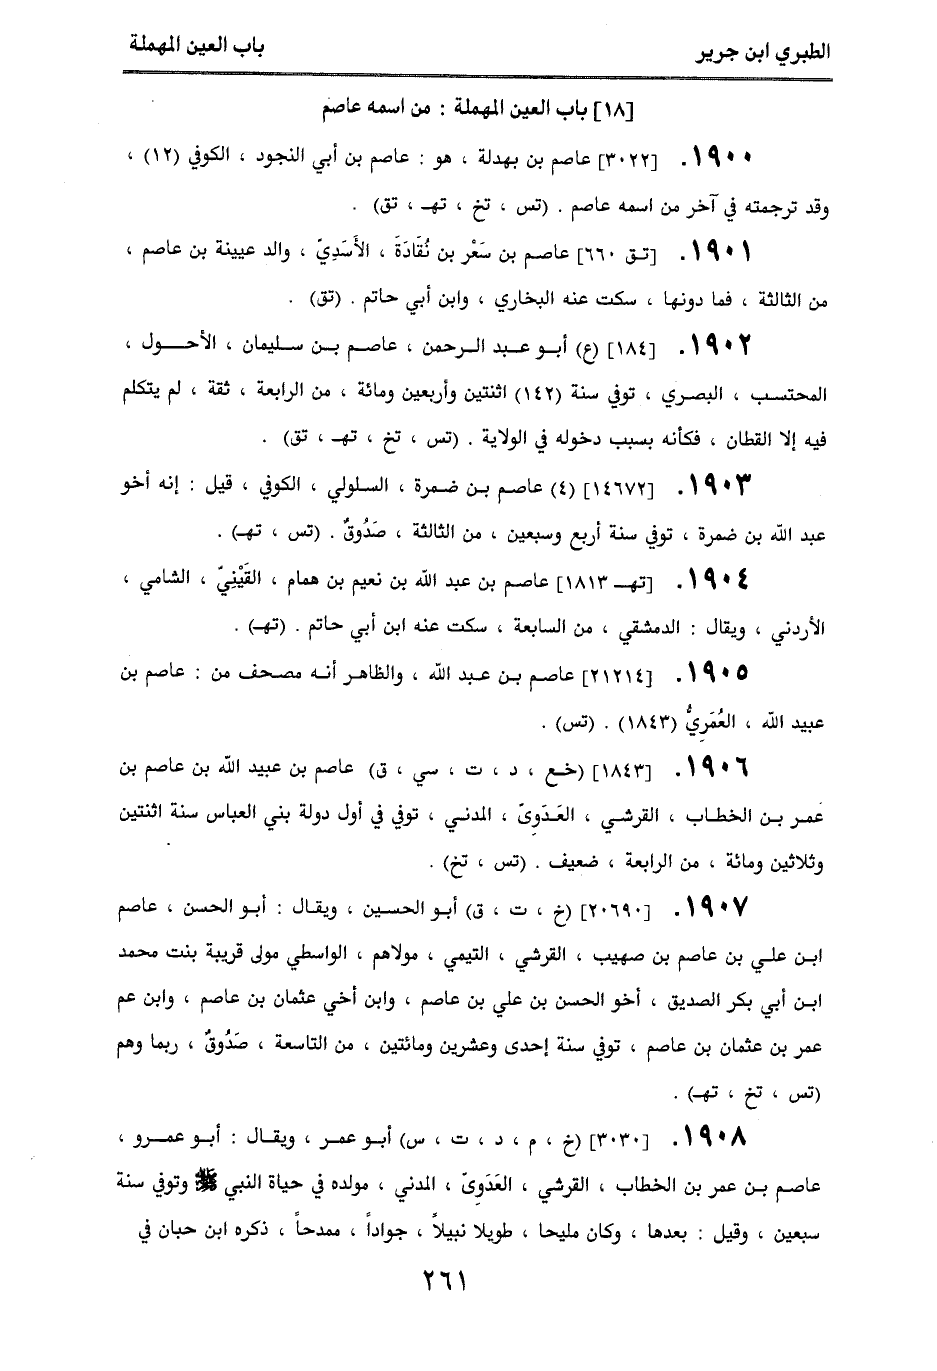 الطبري ابن جرير
باب العين المهملة
[١٨] باب العين المهملة : من اسمه عاصم
١٩٠٠. [٣٠٢٢] عاصم بن بهدلة ، هو : عاصم بن أبي النجود ، الكوفي (١٢) ،
وقد ترجمته في آخر من اسمه عاصم . (تس ، تخ ، تهـ ، تق) .
١٩٠١. [تق ٦٦٠] عاصم بن سَعْر بن نُقَادَةَ ، الأَسَدِيّ ، والد عيينة بن عاصم ،
من الثالثة ، فما دونها ، سكت عنه البخاري ، وابن أبي حاتم . (تق) .
١٩٠٢. [١٨٤] (ع) أبو عبد الرحمن ، عاصم بن سليمان ، الأحول ،
المحتسب ، البصري ، توفي سنة (١٤٢) اثنتين وأربعين ومائة ، من الرابعة ، ثقة ، لم يتكلم
فيه إلا القطان ، فكأنه بسبب دخوله في الولاية . (تس ، تخ ، تهـ ، تق) .
١٩٠٣. [١٤٦٧٢] (٤) عاصم بن ضمرة ، السلولي ، الكوفي ، قيل : إنه أخو
عبد الله بن ضمرة ، توفي سنة أربع وسبعين ، من الثالثة ، صَدُوقٌ . (تس ، تهـ) .
١٩٠٤. [تهـ ١٨١٣] عاصم بن عبد الله بن نعيم بن همام ، القَيْنِيّ ، الشامي ،
الأردني ، ويقال : الدمشقي ، من السابعة ، سكت عنه ابن أبي حاتم . (تهـ) .
١٩٠٥. [٢١٢١٤] عاصم بن عبد الله ، والظاهر أنه مصحف من : عاصم بن
عبيد الله ، العُمَرِيُّ (١٨٤٣) . (تس) .
١٩٠٦. [١٨٤٣] (خع ، د ، ت ، سي ، ق) عاصم بن عبيد الله بن عاصم بن
عمر بن الخطاب ، القرشي ، العَدَوِىّ ، المدني ، توفي في أول دولة بني العباس سنة اثنتين
وثلاثين ومائة ، من الرابعة ، ضعيف . (تس ، تخ) .
١٩٠٧. [٢٠٦٩٠] (خ ، ت ، ق) أبو الحسين ، ويقال : أبو الحسن ، عاصم
ابن علي بن عاصم بن صهيب ، القرشي ، التيمي ، مولاهم ، الواسطي مولى قريبة بنت محمد
ابن أبي بكر الصديق ، أخو الحسن بن علي بن عاصم ، وابن أخي عثمان بن عاصم ، وابن عم
عمر بن عثمان بن عاصم ، توفي سنة إحدى وعشرين ومائتين ، من التاسعة ، صَدُوقٌ ، ربما وهم
(تس ، تخ ، تهـ) .
١٩٠٨. [٣٠٣٠] (خ ، م ، د ، ت ، س) أبو عمر ، ويقال : أبو عمرو ،
عاصم بن عمر بن الخطاب ، القرشي ، العَدَوِىّ ، المدني ، مولده في حياة النبي ﷺ وتوفي سنة
سبعين ، وقيل : بعدها ، وكان مليحا ، طويلا نبيلاً ، جواداً ، ممدحاً ، ذكره ابن حبان في
٢٦١